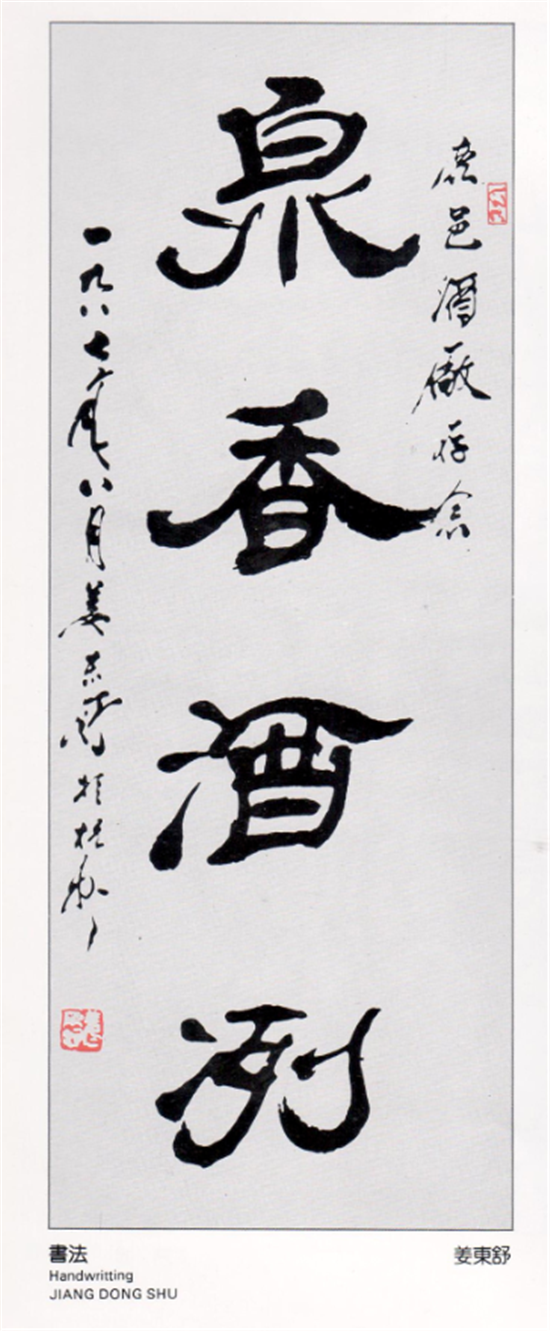 鹿邑酒廠存念
泉香酒冽
一九八七年八月姜东舒於杭州
書法
Handwritting
JIANG DONG SHU
姜東舒